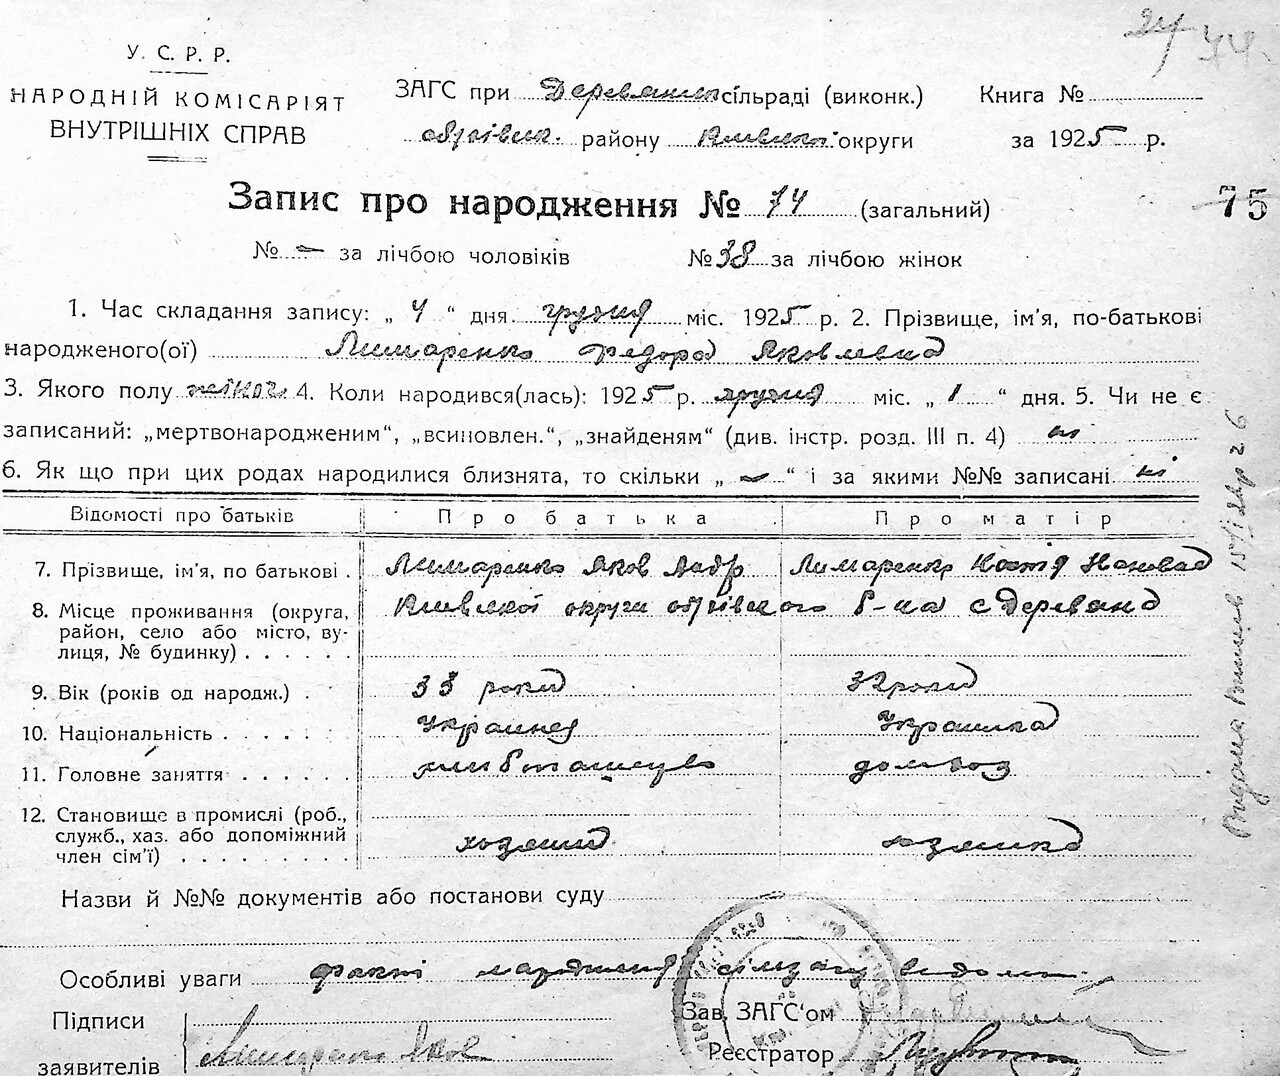 24 44
У. С. Р. Р.
НАРОДНІЙ КОМІСАРІЯТ
ВНУТРІШНІХ СПРАВ
ЗАГС при сільраді (виконк.)
району округи
Книга №
за 1925 р.
Запис про народження № 74 (загальний)
75
№ — за лічбою чоловіків № 38 за лічбою жінок
1. Час складання запису: „ 4 “ дня грудня міс. 1925 р. 2. Прізвище, ім'я, по-батькові
народженого(ої) Лимаренко Федора Яковлевна
3. Якого полу жіноч. 4. Коли народився(лась): 1925 р. грудня міс. „ 1 “ дня. 5. Чи не є
записаний: „мертвонародженим“, „всиновлен.“, „знайденям“ (див. інстр. розд. III п. 4) ні
6. Як що при цих родах народилися близнята, то скільки „ — “ і за якими №№ записані ні
Відомості про батьків Про батька Про матір
7. Прізвище, ім'я, по батькові . Лимаренко Яков Лимаренко
8. Місце проживання (округа, район, село або місто, вулиця, № будинку) . . . . . . Київської округи Обухівского р-на с Деревяна
9. Вік (років од народж.) . 33 роки 32 роки
10. Національність . . . . . . Украинец Украинка
11. Головне заняття . . . . . . хлибопашецтво домхоз
12. Становище в промислі (роб., служб., хаз. або допоміжний член сім'ї) . . . . . . . . хозяин хозяйка
Назви й №№ документів або постанови суду
Особливі уваги факт народження сільраді відом.
Підписи
заявителів Лимарен Яков
Зав. ЗАГС'ом
Реєстратор